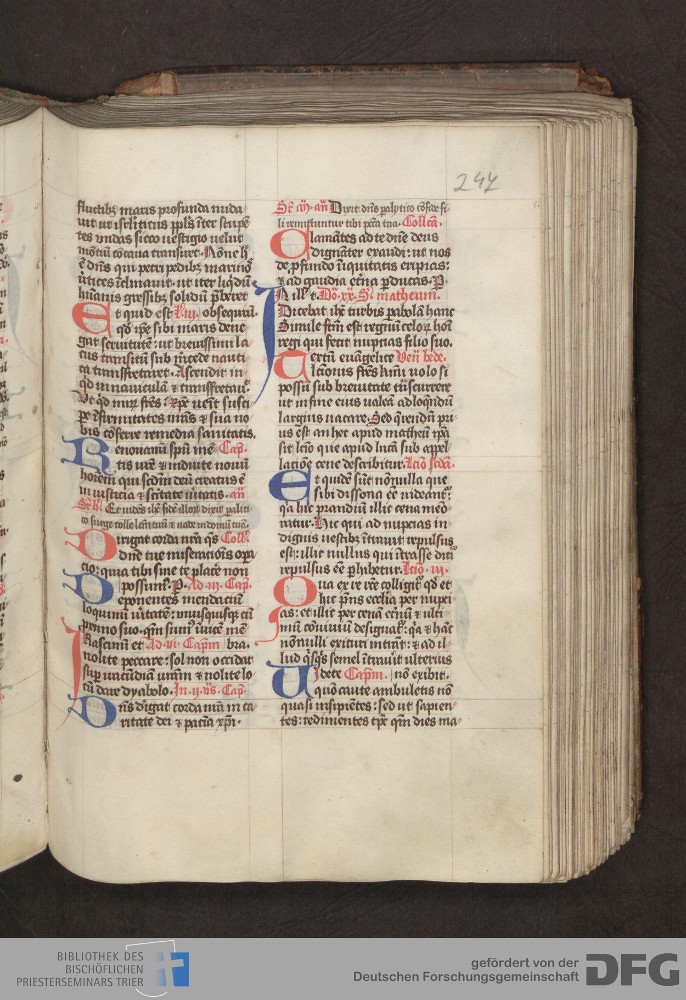 247
fluctibꝫ maris profunda nuda
uit ut isrlíticus ppl̅s it̅er stupe̅
tes undas sicco uestigio uelut
mo̅tiu̅ co̅caua transiret. No̅ne h̅
e̅ dn̅s qui petri pedibꝫ marino̅
u̅tices i̅clinauit. ut iter liq̅du̅
hu̅anis gressibꝫ solidu̅ p̅beret
Et quid est viij. obsequiu̅.
qd̅ ip̅e sibi maris dene
gat seruitute̅: ut breuissimi la
cus transitu̅ sub m̅cede nauti
ca transfretaret. Ascendit in
q̅d in nauicula̅ ⁊ transfretauit.
Et q̅d miru̅ fr̅es. xp̅c ue̅it susci
pe i̅firmitates n̅ras ⁊ sua no
bis co̅ferre remedia sanitatis.
Renouamini sp̅u me̅ Cap̅.
tis ur̅e ⁊ induite nouu̅
ho̅iem qui scd̅m deu̅ creatus e̅
in iusticia ⁊ sc̅itate u̅itatis. an̅
Sr̅ bn̅. Cu̅ uidis̅ ih̅c fide̅ illoꝝ dixit paliti
co surge tolle lectu̅ tuu̅ ⁊ uade in domu̅ tua̅.
Dirigat corda nr̅a q̅s Coll̅.
dn̅e tue miseratio̅is op̅a
cio: quia tibi sine te place̅ non
possum᷒. P. Ad iij. Cap̅.
Deponentes mendaciu̅
loquimi̅ u̅itate̅: unusquisqꝫ cu̅
p̅ximo suo. qm̅ sum᷒ i̅uice̅ me̅
Irascimi̅ et Ad vi. Capm̅ bra.
nolite peccare: sol non occidat
sup̅ iracu̅diam ur̅am ⁊ nolite lo
cu̅ dare dyabolo. In ij. v̅s. Cap̅.
Dn̅s dirigat corda nr̅a in ca
ritate dei ⁊ pacie̅a xp̅i.
Sr̅ m̅. an̅ Dixit dn̅s palytico co̅fide fi
li remittuntur tibi pcc̅a tua. Collcā.
Clama̅tes ad te dn̅e deus
digna̅ter exaudi: ut nos
de p̅fundo i̅iquitatis eripias:
⁊ ad gaudia et̅na p̅ducas. P.
In ill̅o t̅. Do̅. xx. S. matheum.
Dicebat ih̅c turbis parabola̅ hanc
Simile fc̅m est regnu̅ celoꝝ ho̅i
regi qui fecit nuptias filio suo.
Certu̅ eua̅gelice Ven̅ bede.
lc̅ionis fr̅es k̅mi uolo si
possu̅ sub breuitate tu̅scurrere
ut in fine eius ualea̅ ad loq̅ndu̅
largius uacare. Sed q̅rendu̅ pri
us est an h̅ec apud matheu̅ ip̅a
sit lc̅io que apud luca̅ sub appel
lac̅o̅e cene describitur. lc̅io scd̅a.
Et quide̅ su̅t no̅nulla que
sibi dissona e̅e uideant᷒:
q̅a hic prandiu̅ illic cena me̅o
ratur. hic qui ad nuptias in
dignis uestibꝫ i̅trauit repulsus
est: illic nullus qui i̅trasse dici᷒
repulsus e̅e p̅hibetur. lc̅io. iij.
Qua ex re rc̅e colligit᷒ q̅d et
hic p̅ns eccl̅ia per nupti
as: et illic per cena̅ et̅na̅ ⁊ ulti
mu̅ co̅uiuiu̅ designat᷒: q̅a ⁊ ha̅c
no̅nulli exituri intra̅t: ⁊ ad il
lud q̅sq̅s semel i̅trau̅it ulterius
Videte Capm̅. no̅ exibit.
quo̅ caute ambuletis no̅
quasi insipie̅tes: sed ut sapien
tes: redimentes tp̅c qm̅ dies ma
BIBLIOTHEK DES
BISCHÖFLICHEN
PRIESTERSEMINARS TRIER
gefördert von der
Deutschen Forschungsgemeinschaft
DFG